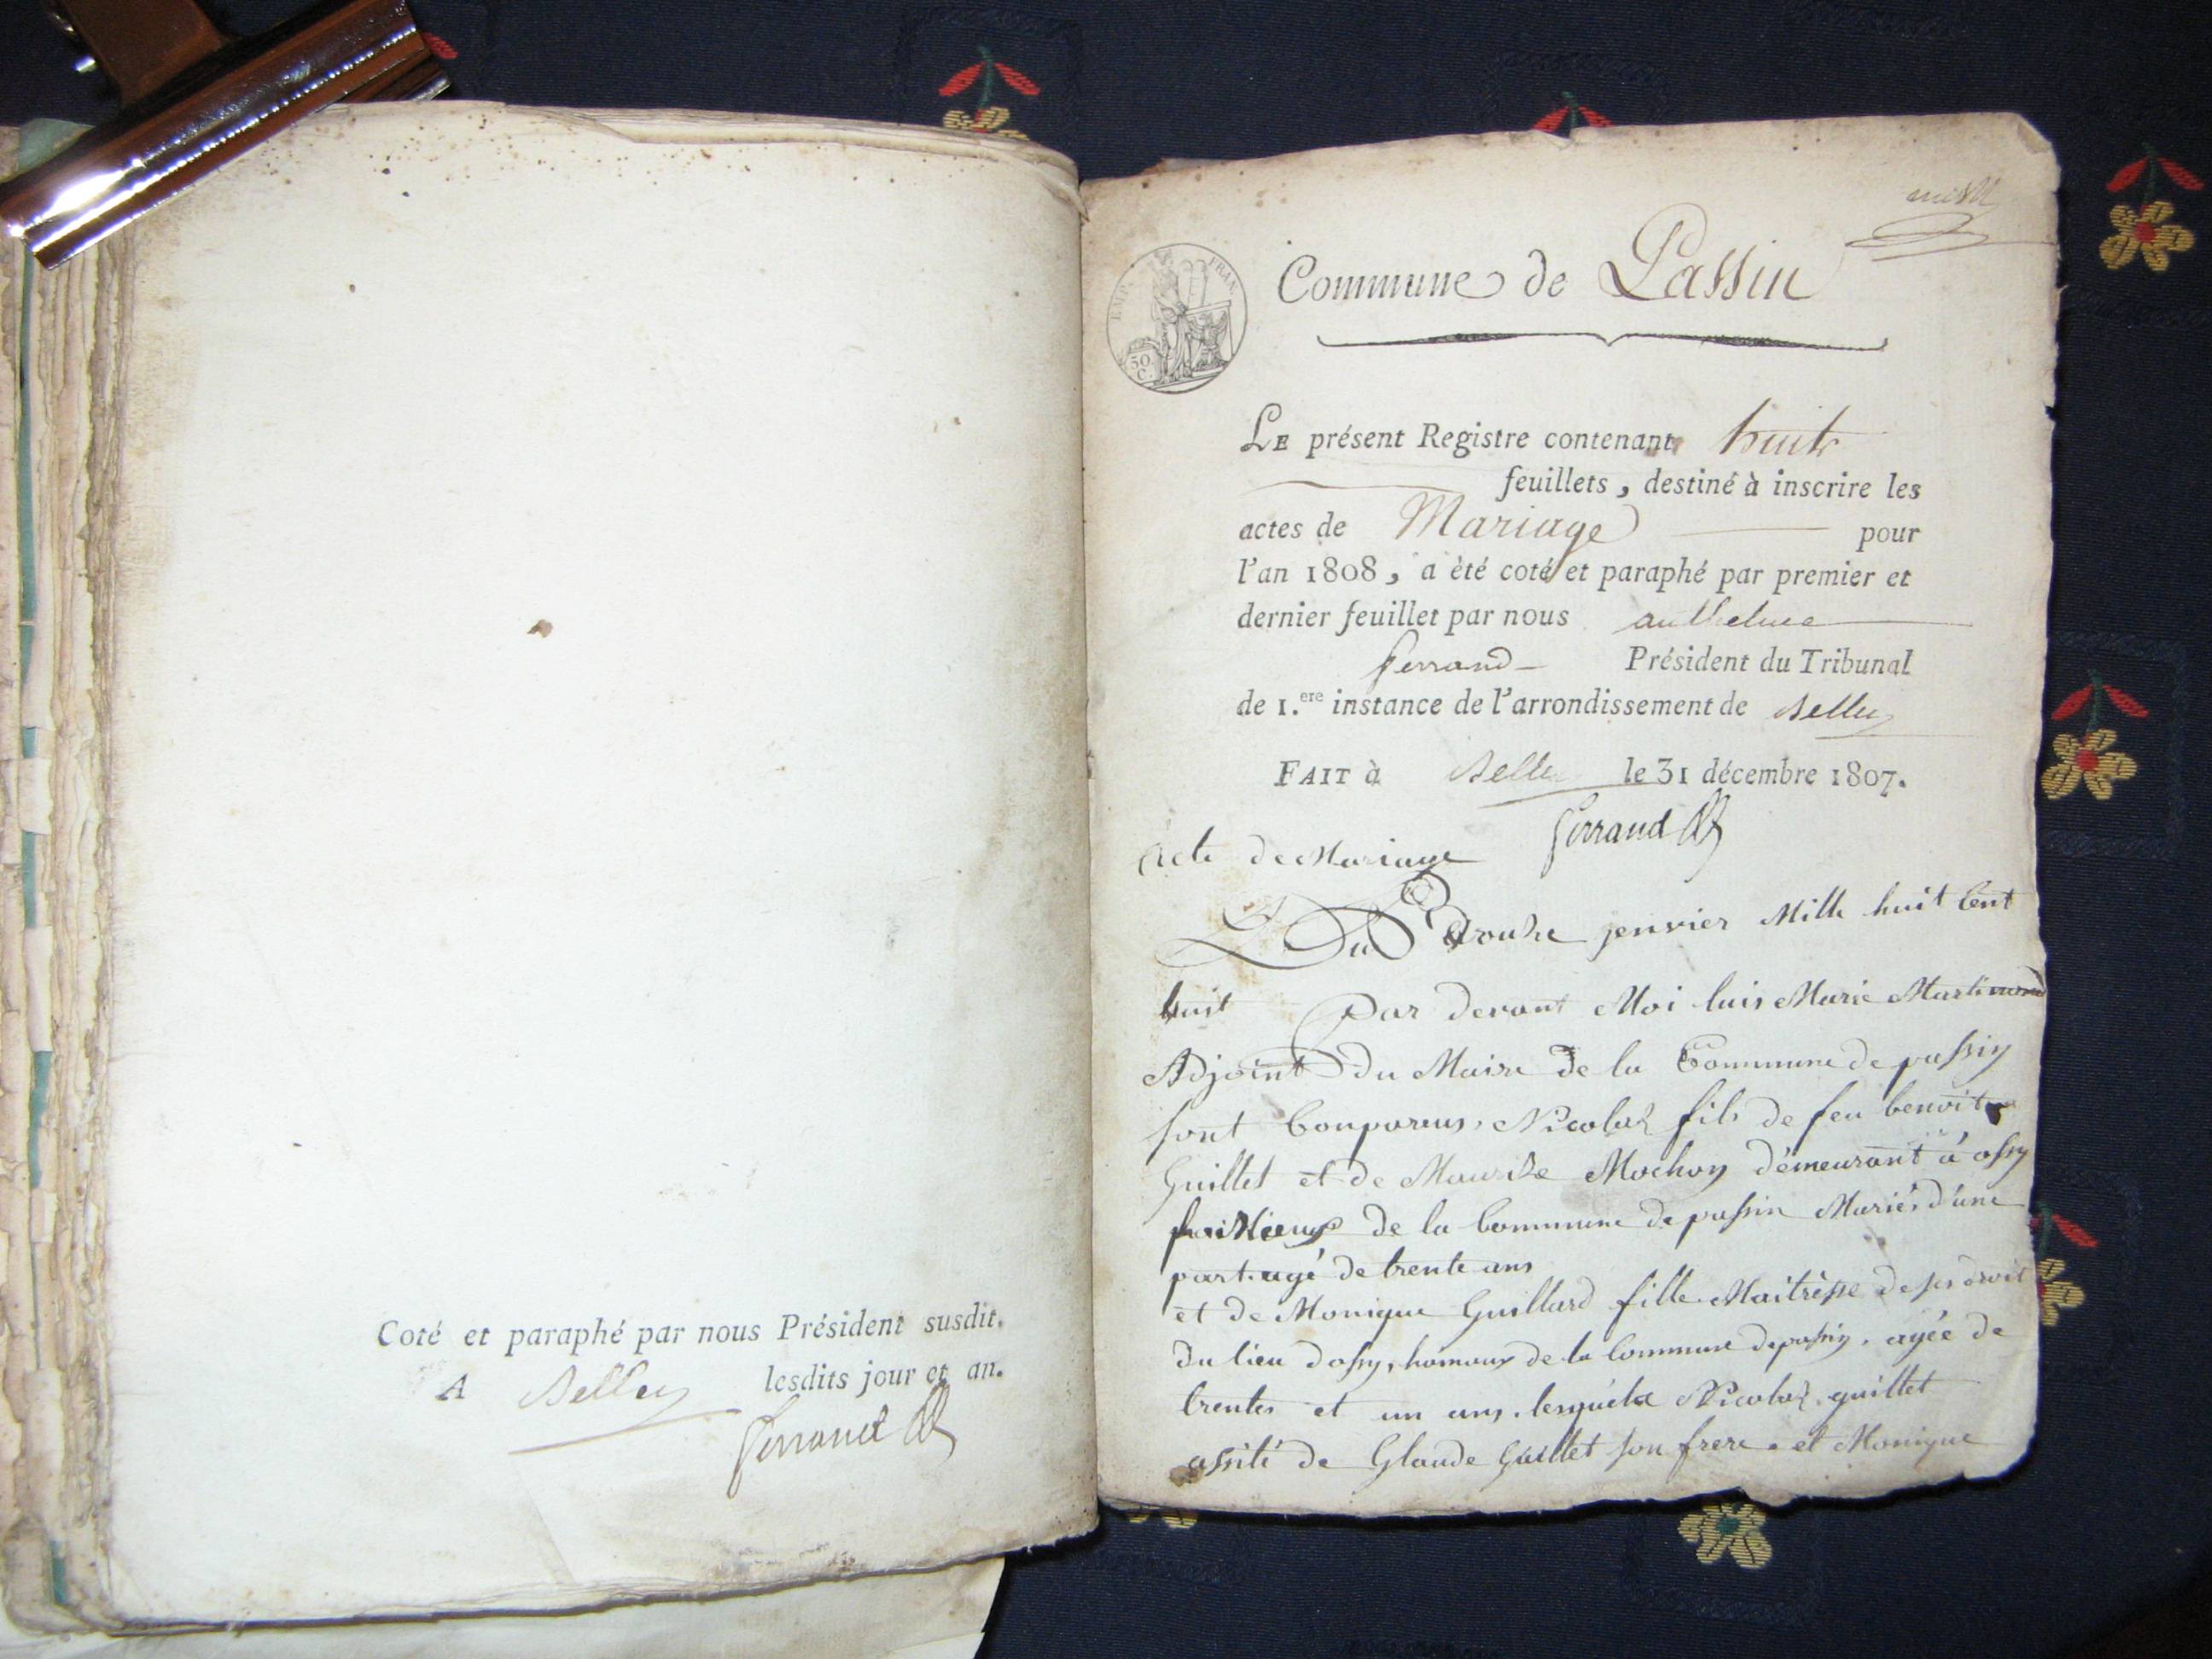 Coté et paraphé par nous Président susdit.
A Belley lesdits jour et an.
Ferrand
EMP. FRAN.
50 C.
Commune de Passin
LE présent Registre contenant huit
feuillets, destiné à inscrire les
actes de Mariage pour
l'an 1808, a été coté et paraphé par premier et
dernier feuillet par nous anthelme
ferrand Président du Tribunal
de 1.ere instance de l'arrondissement de Belley
FAIT à Belley le 31 décembre 1807.
Ferrand
Acte de Mariage
Du douze jenvier Mille huit Cent
huit Par devant Moi luis Marie Martinand
Adjoint du Maire de la Commune de passin
sont Comparus, Nicolas fils de feu benoit
Guillet et de Maurise Mochon démeurant à ossy
de la Commune de passin Mariés d'une
part agé de trente ans
et de Monique Guillard fille Maitresse de ses droit
du lieu dossy, hamaux de la Commune de passin, agée de
trentes et un ans, lesquels Nicolas guillet
assité de Glaude Guillet son frere et Monique